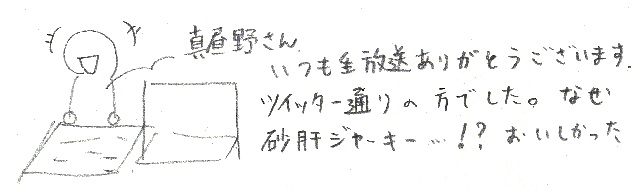 真昼野さん
いつも生放送ありがとうございます。
ツイッター通りの方でした。なぜ
砂肝ジャーキー…!? おいしかった